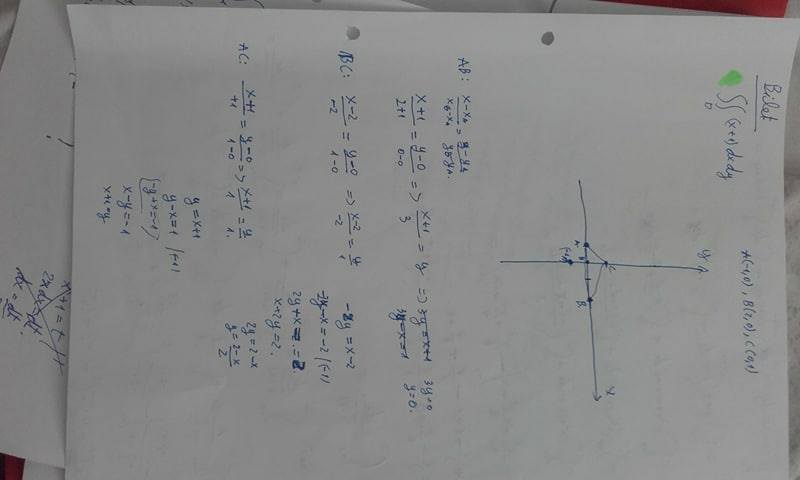 Bilet
∬ (x+1) dxdy
D
A(-1,0), B(2,0), C(0,1)
y
C
A
B
x
AB: x-xA / xB-xA = y-yA / yB-yA
x+1 / 2+1 = y-0 / 0-0 => x+1 / 3 = y => 3y=x+1 3y=0
3y-x=1 y=0.
BC: x-2 / -2 = y-0 / 1-0 => x-2 / -2 = y / 1
-2y = x-2
-2y-x = -2 |(-1)
2y+x = 2
x+2y=2.
2y = 2-x
y = 2-x / 2
AC: x+1 / +1 = y-0 / 1-0 => x+1 / 1 = y / 1.
y = x+1
y-x=1 |(-1)
(-y+x=-1)
x-y=-1
x+1=y
x+1=t
2x dx = dt
dx = dt